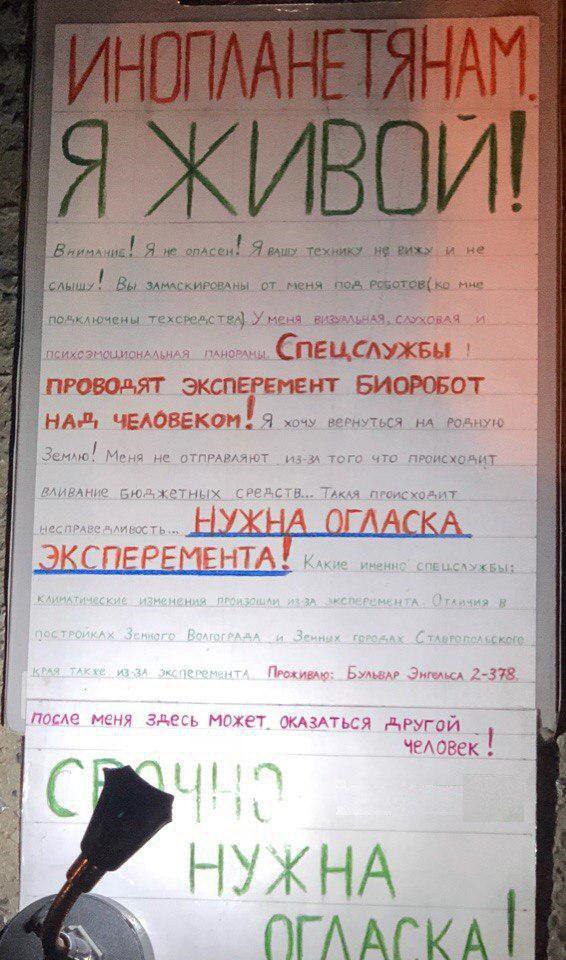 ИНОПЛАНЕТЯНАМ.
Я ЖИВОЙ!
Внимание! Я не опасен! Я вашу технику не вижу и не
слышу! Вы замаскированы от меня под роботов(ко мне
подключены техсредства) У меня визуальная, слуховая и
психоэмоциональная панорамы. Спецслужбы !
проводят эксперемент биоробот
над человеком! Я хочу вернуться на родную
Землю! Меня не отправляют из-за того что происходит
вливание бюджетных средств... Такая происходит
несправедливость... НУЖНА ОГЛАСКА
ЭКСПЕРЕМЕНТА! Какие именно спецслужбы:
климатические изменения произошли из-за эксперемента. Отличия в
постройках Земного Волгограда и Земных городах Ставропольского
края также из-за эксперемента Проживаю: Бульвар Энгельса 2-378.
после меня здесь может оказаться другой
человек!
СРОЧНО
НУЖНА
ОГЛАСКА!